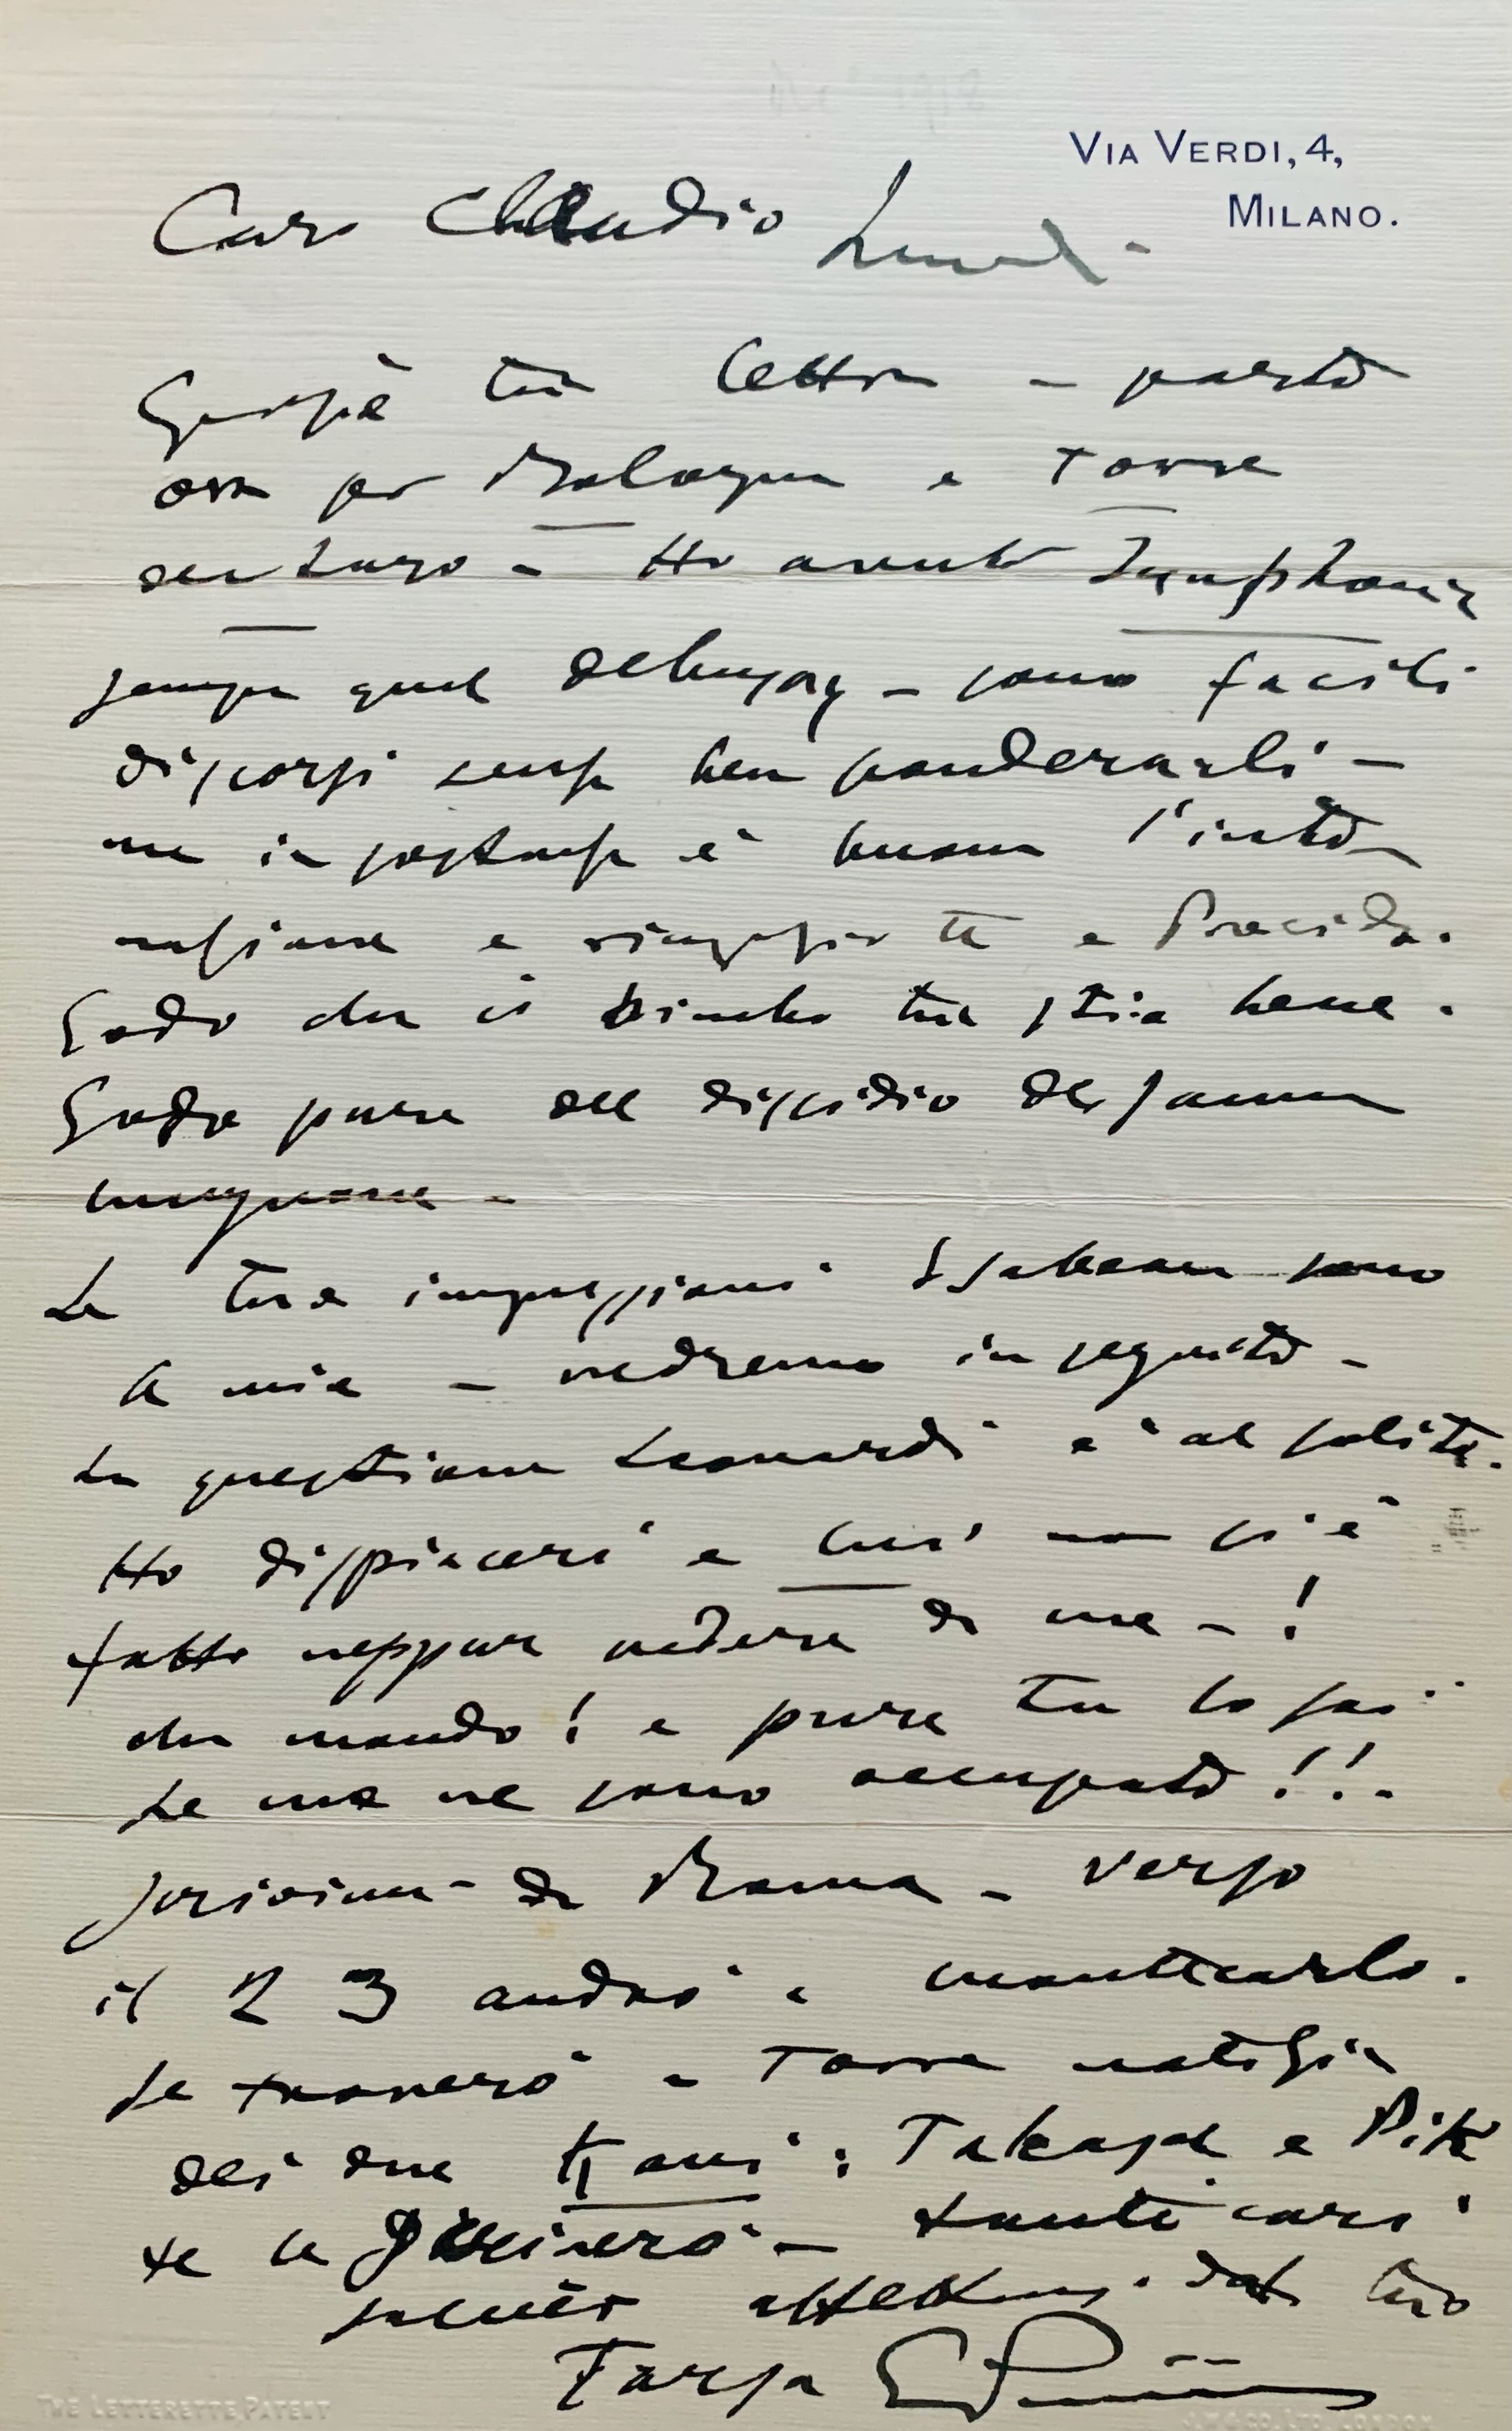 VIA VERDI, 4,
MILANO.
Caro Claudio
Grazie tua lettera - parto
ora per Bologna e Torre
del Lago - Ho avuto Symphonia
sempre quel debussy - sono facili
discorsi senza ben ponderarli -
ma in sostanza è buona l'into
nazione e ringrazio te e Procida.
Godo che il bimbo tuo stia bene.
Godo pure del dissidio
mugnone -
Le tue impressioni Isabeau sono
le mie - vedremo in seguito -
La questione Leonardi è al solito.
Ho dispiaceri e lui non si è
fatto neppur vedere da me - !
che mondo! e pure tu lo sai
se me ne sono occupato!!.
scrivimi da Roma - verso
il 23 andrò a montecarlo.
se troverò a Torre notizia
dei due Kani: Takase e Pik
te la scriverò - tanti cari
saluti affettuosi dal tuo
GPuccini
THE LETTERETTE PATENT